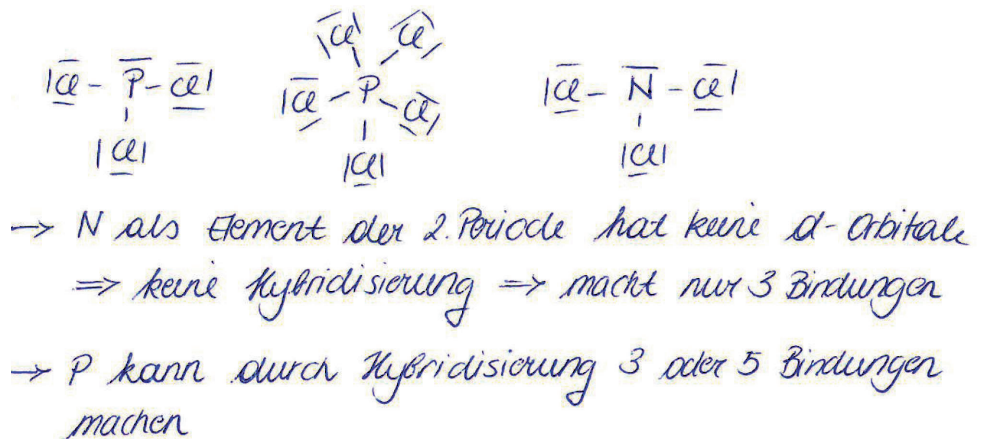 |Cl - P - Cl| |Cl - P - Cl |Cl - N - Cl|
Cl Cl
|Cl| |Cl| |Cl|
→ N als Element der 2. Periode hat keine d-Orbitale
⇒ keine Hybridisierung ⇒ macht nur 3 Bindungen
→ P kann durch Hybridisierung 3 oder 5 Bindungen
machen